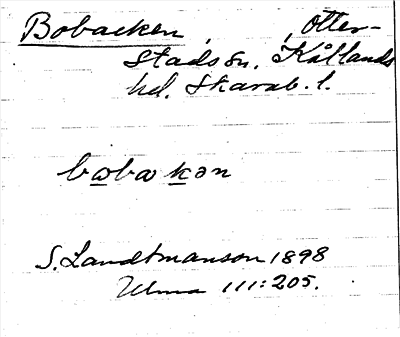 Bobacken, , Otter-
stads sn, Kållands
hd. Skarab. l.
bωbα kən
S. Landtmanson 1898
Ulma 111:205.